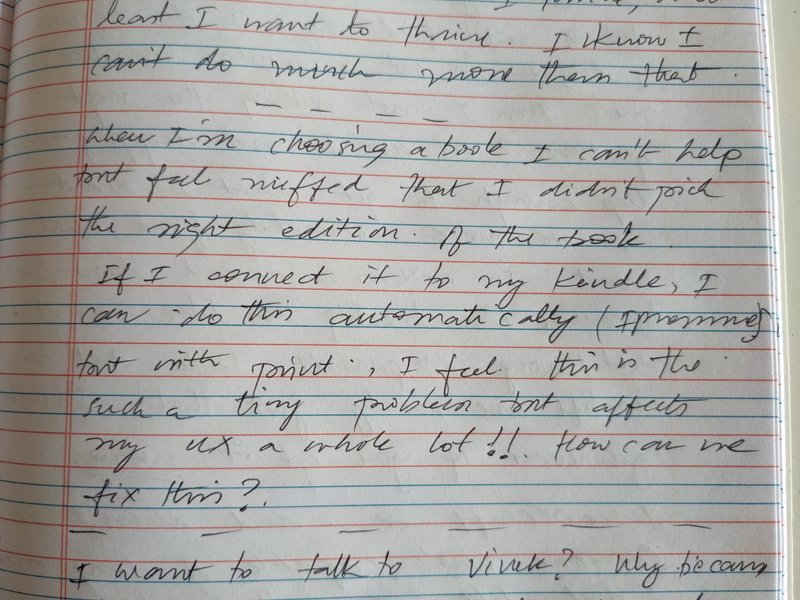 least I want to thrive. I know I
can't do much more than that.
when I'm choosing a book I can't help
but feel miffed that I didn't pick
the right edition. of the book.
If I connect it to my kindle, I
can do this automatically (I presume)
but with print., I feel this is the
such a tiny problem but affects
my UX a whole lot!!. How can we
fix this?.
I want to talk to Vivek? Why becaus